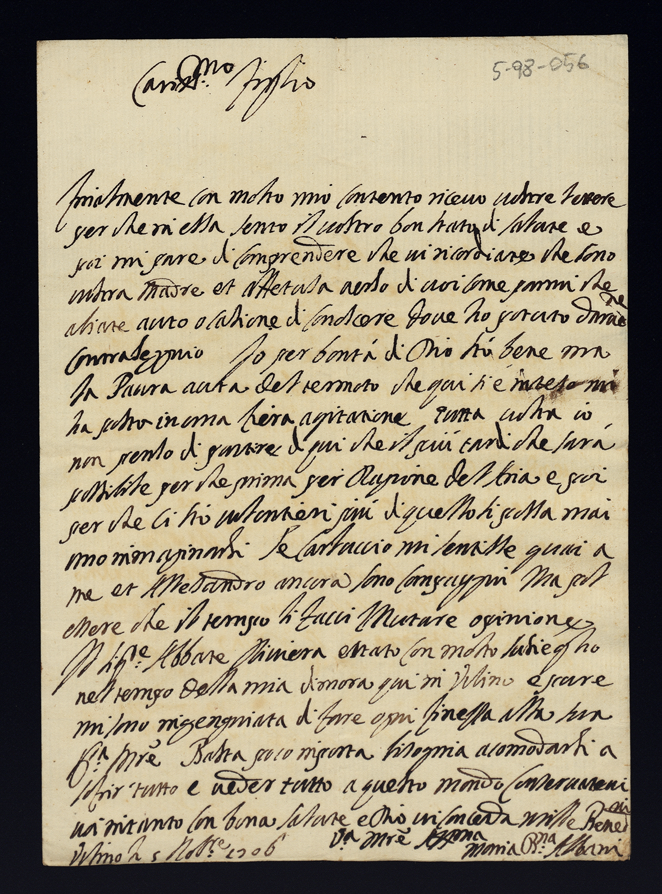 5-98-056
Cariss.mo figlio
finalmente con molto mio contento ricevo vostre lettere
per che in essa sento il vostro bon stato di salute e
poi mi pare di comprendere che vi ricordiate che sono
vostra Madre et affetuosa verso di voi come parmi che
abiate auto ocasione di conoscere dove ho potuto
Io per bontà di Dio stò bene ma
la Paura auta del termoto che qui si è inteso mi
ha posto in una fiera agitatione tutta volta io
non penso di partire di qui che il più tardi che sarà
possibile per che prima per Ragione dell'Aria e poi
per che ci stò volontieri più di quello si possa mai
imaginarsi Se Carluccio mi sentisse guai a
me et Allesandro ancora sono Ma pol
essere che il tempo li facci Mutare opinione
Il Abbate Riviera è stato con molto
nel tempo della mia dimora qui in Urbino e pure
mi sono ingegniata di fare ogni finessa alla sua
Mre Basta poco importa bisognia acomodarsi a
sofrir tutto e veder tutto a questo mondo Conservatevi
intanto con bona salute e Dio vi conceda mille Bened.ni
V.a Mre
Urbino li 5 Nobre 1706 Maria B.na Albani